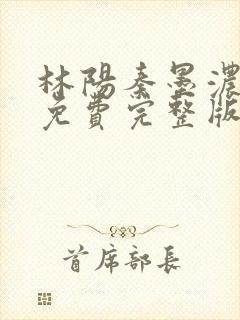 林陽秦墨濃
免費完整版
首席部長